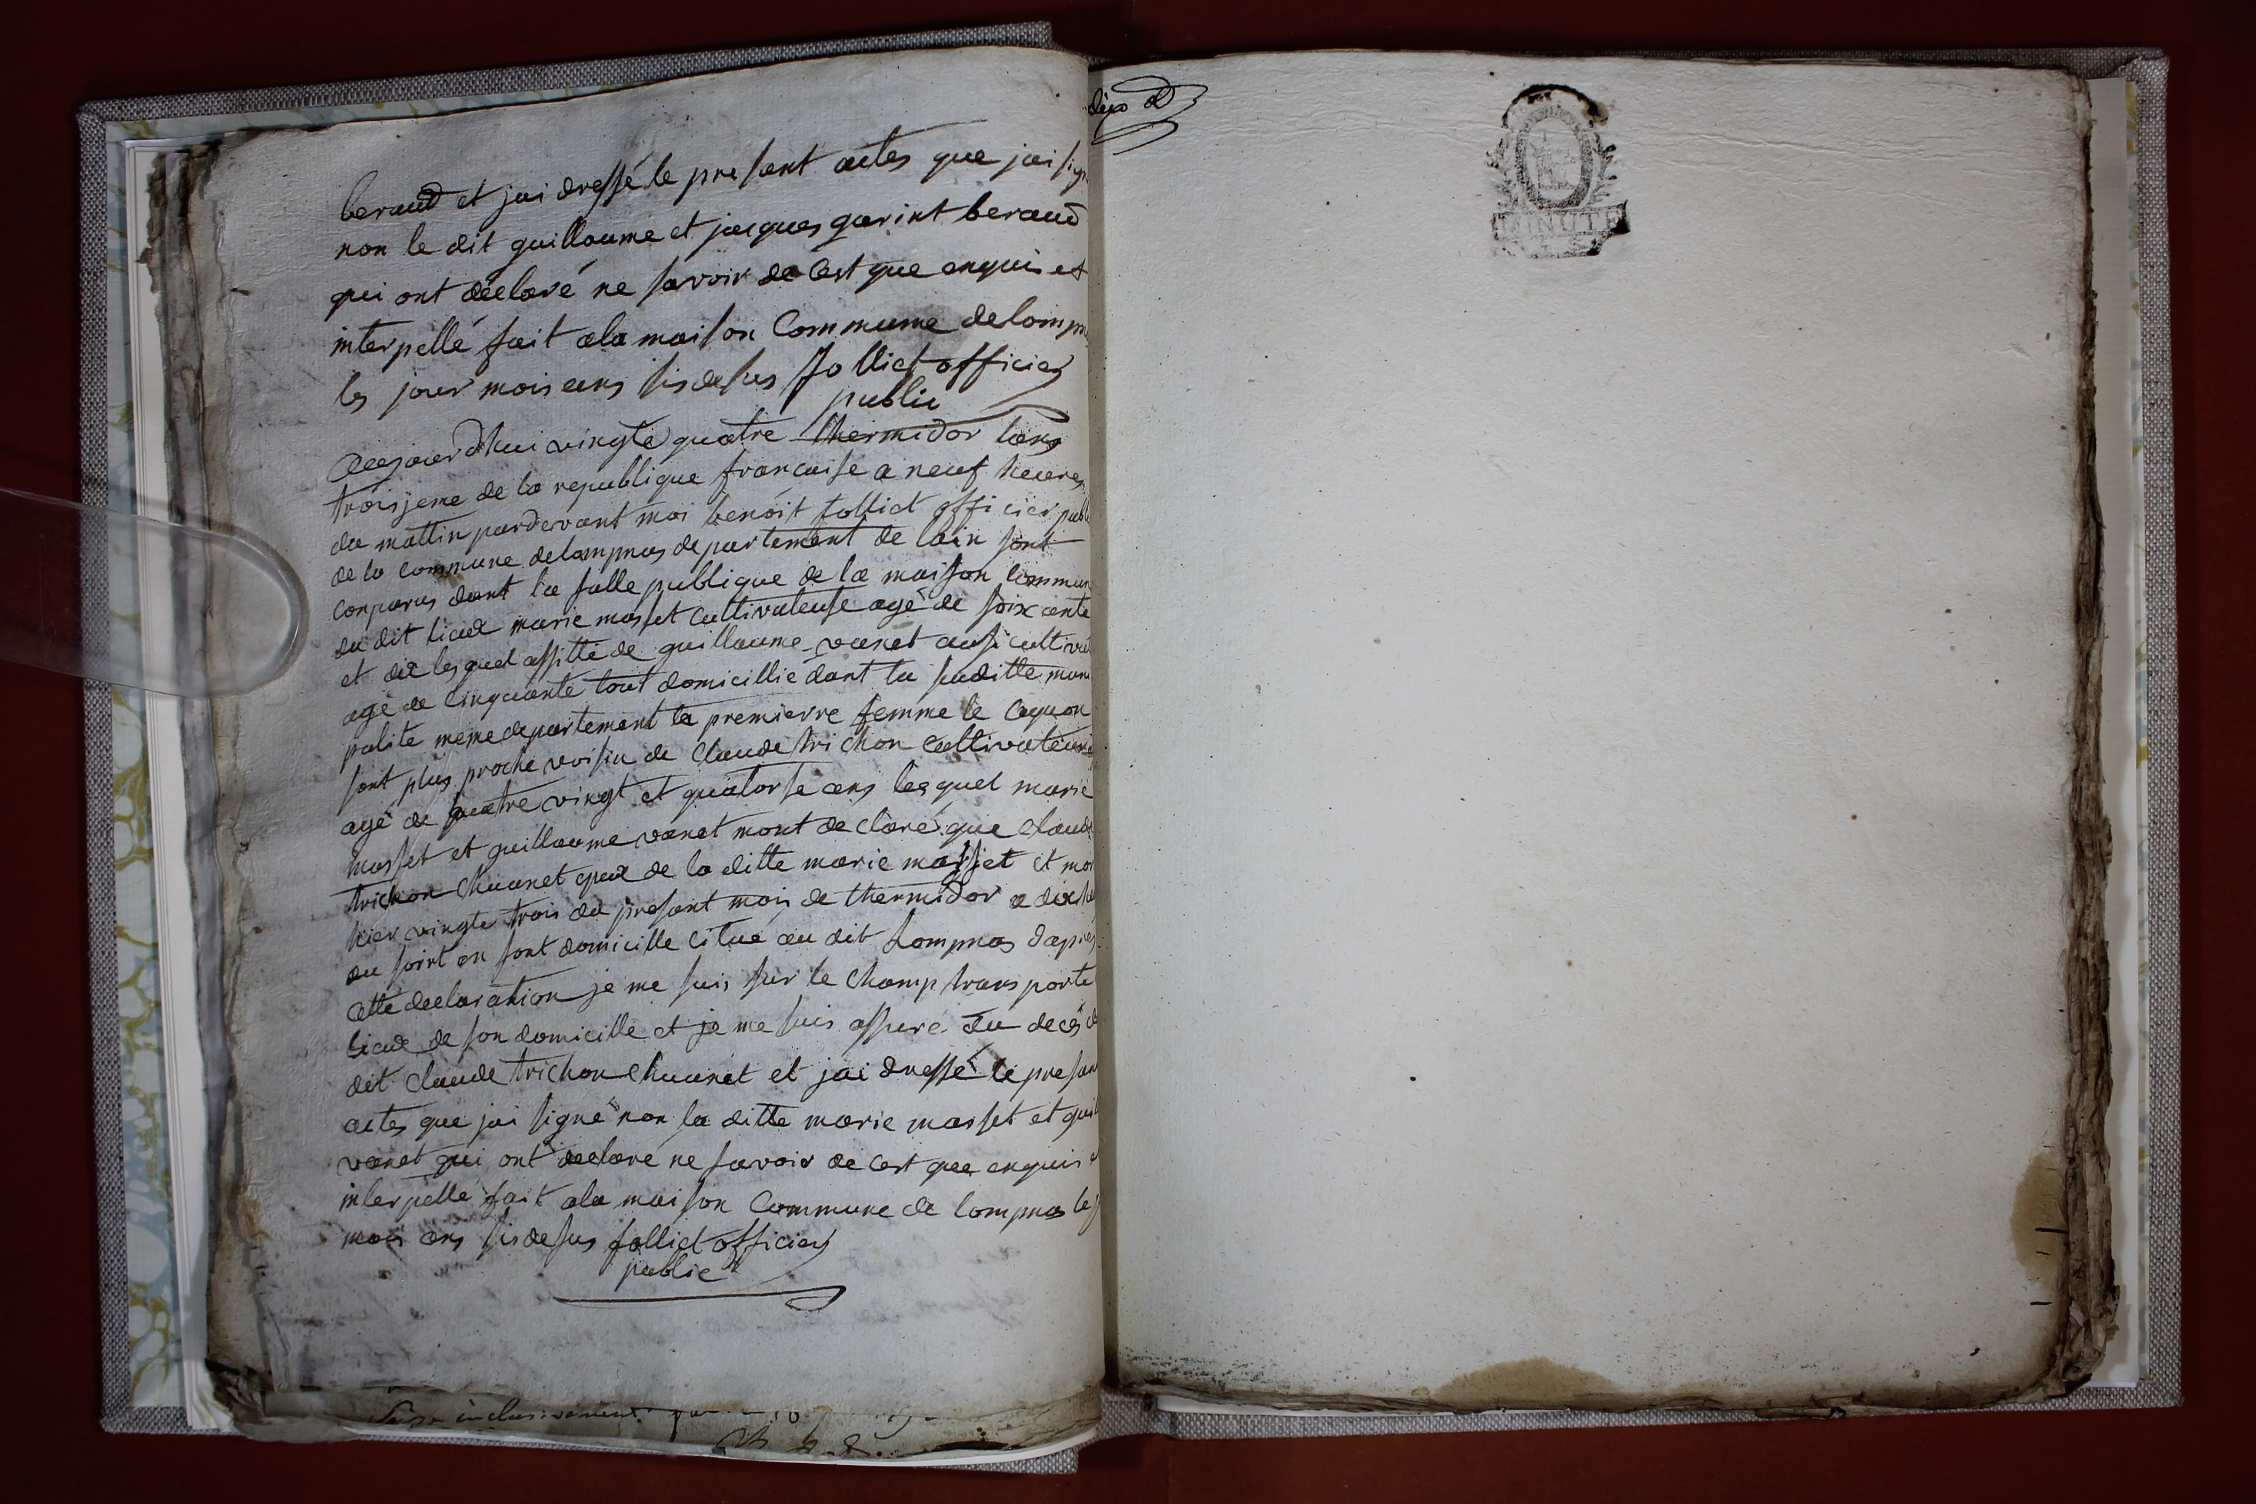 beraud et jai dressé le presant actes que jai sign
non le dit guillaume et jacques garint beraud
qui ont déclaré ne savoir de cest que enquis et
interpellé fait ala maison Commune delompn
les jour mois ans sisdesus Jolliet officier
public
aujourdhui vingte quatre thermidor lans
troisjeme de la republique francaise a neuf heures
du mattin pardevant moi benoit jolliet officier publ
de la commune delompnas departement de lain sont
conparus dant la salle publique de la maison commun
du dit lieux marie masset cultivateuse agé de soixcente
et dix lesquel assitté de guillaume vanet ausi cultivat
agé de cinquante tout domicillié dant la suditte muni
palite meme departement la premierre femme le
sont plus proche voisin de Claude trichon cultivateur
agé de quatre vingt et quatorse ans lesquel marie
masset et guillaume vanet mont declaré que claude
trichon chuanet epux de la ditte marie masset et mor
hier vingte trois du presant mois de thermidor a dix he
du soirt en sont domicille citué au dit Lompnas dapres
cette declaration je me suis sur le champ transporté
lieux de son domicille et je me suis assuré du decès d
dit claude trichon chuanet et jai dressé le presan
actes que jai signé non la ditte marie masset et guil
vanet qui ont declaré ne savoir de cest que enquis e
interpellé fait ala maison Commune de lompnas le j
mois ans sisdesus jolliet officier
public
inclusivement